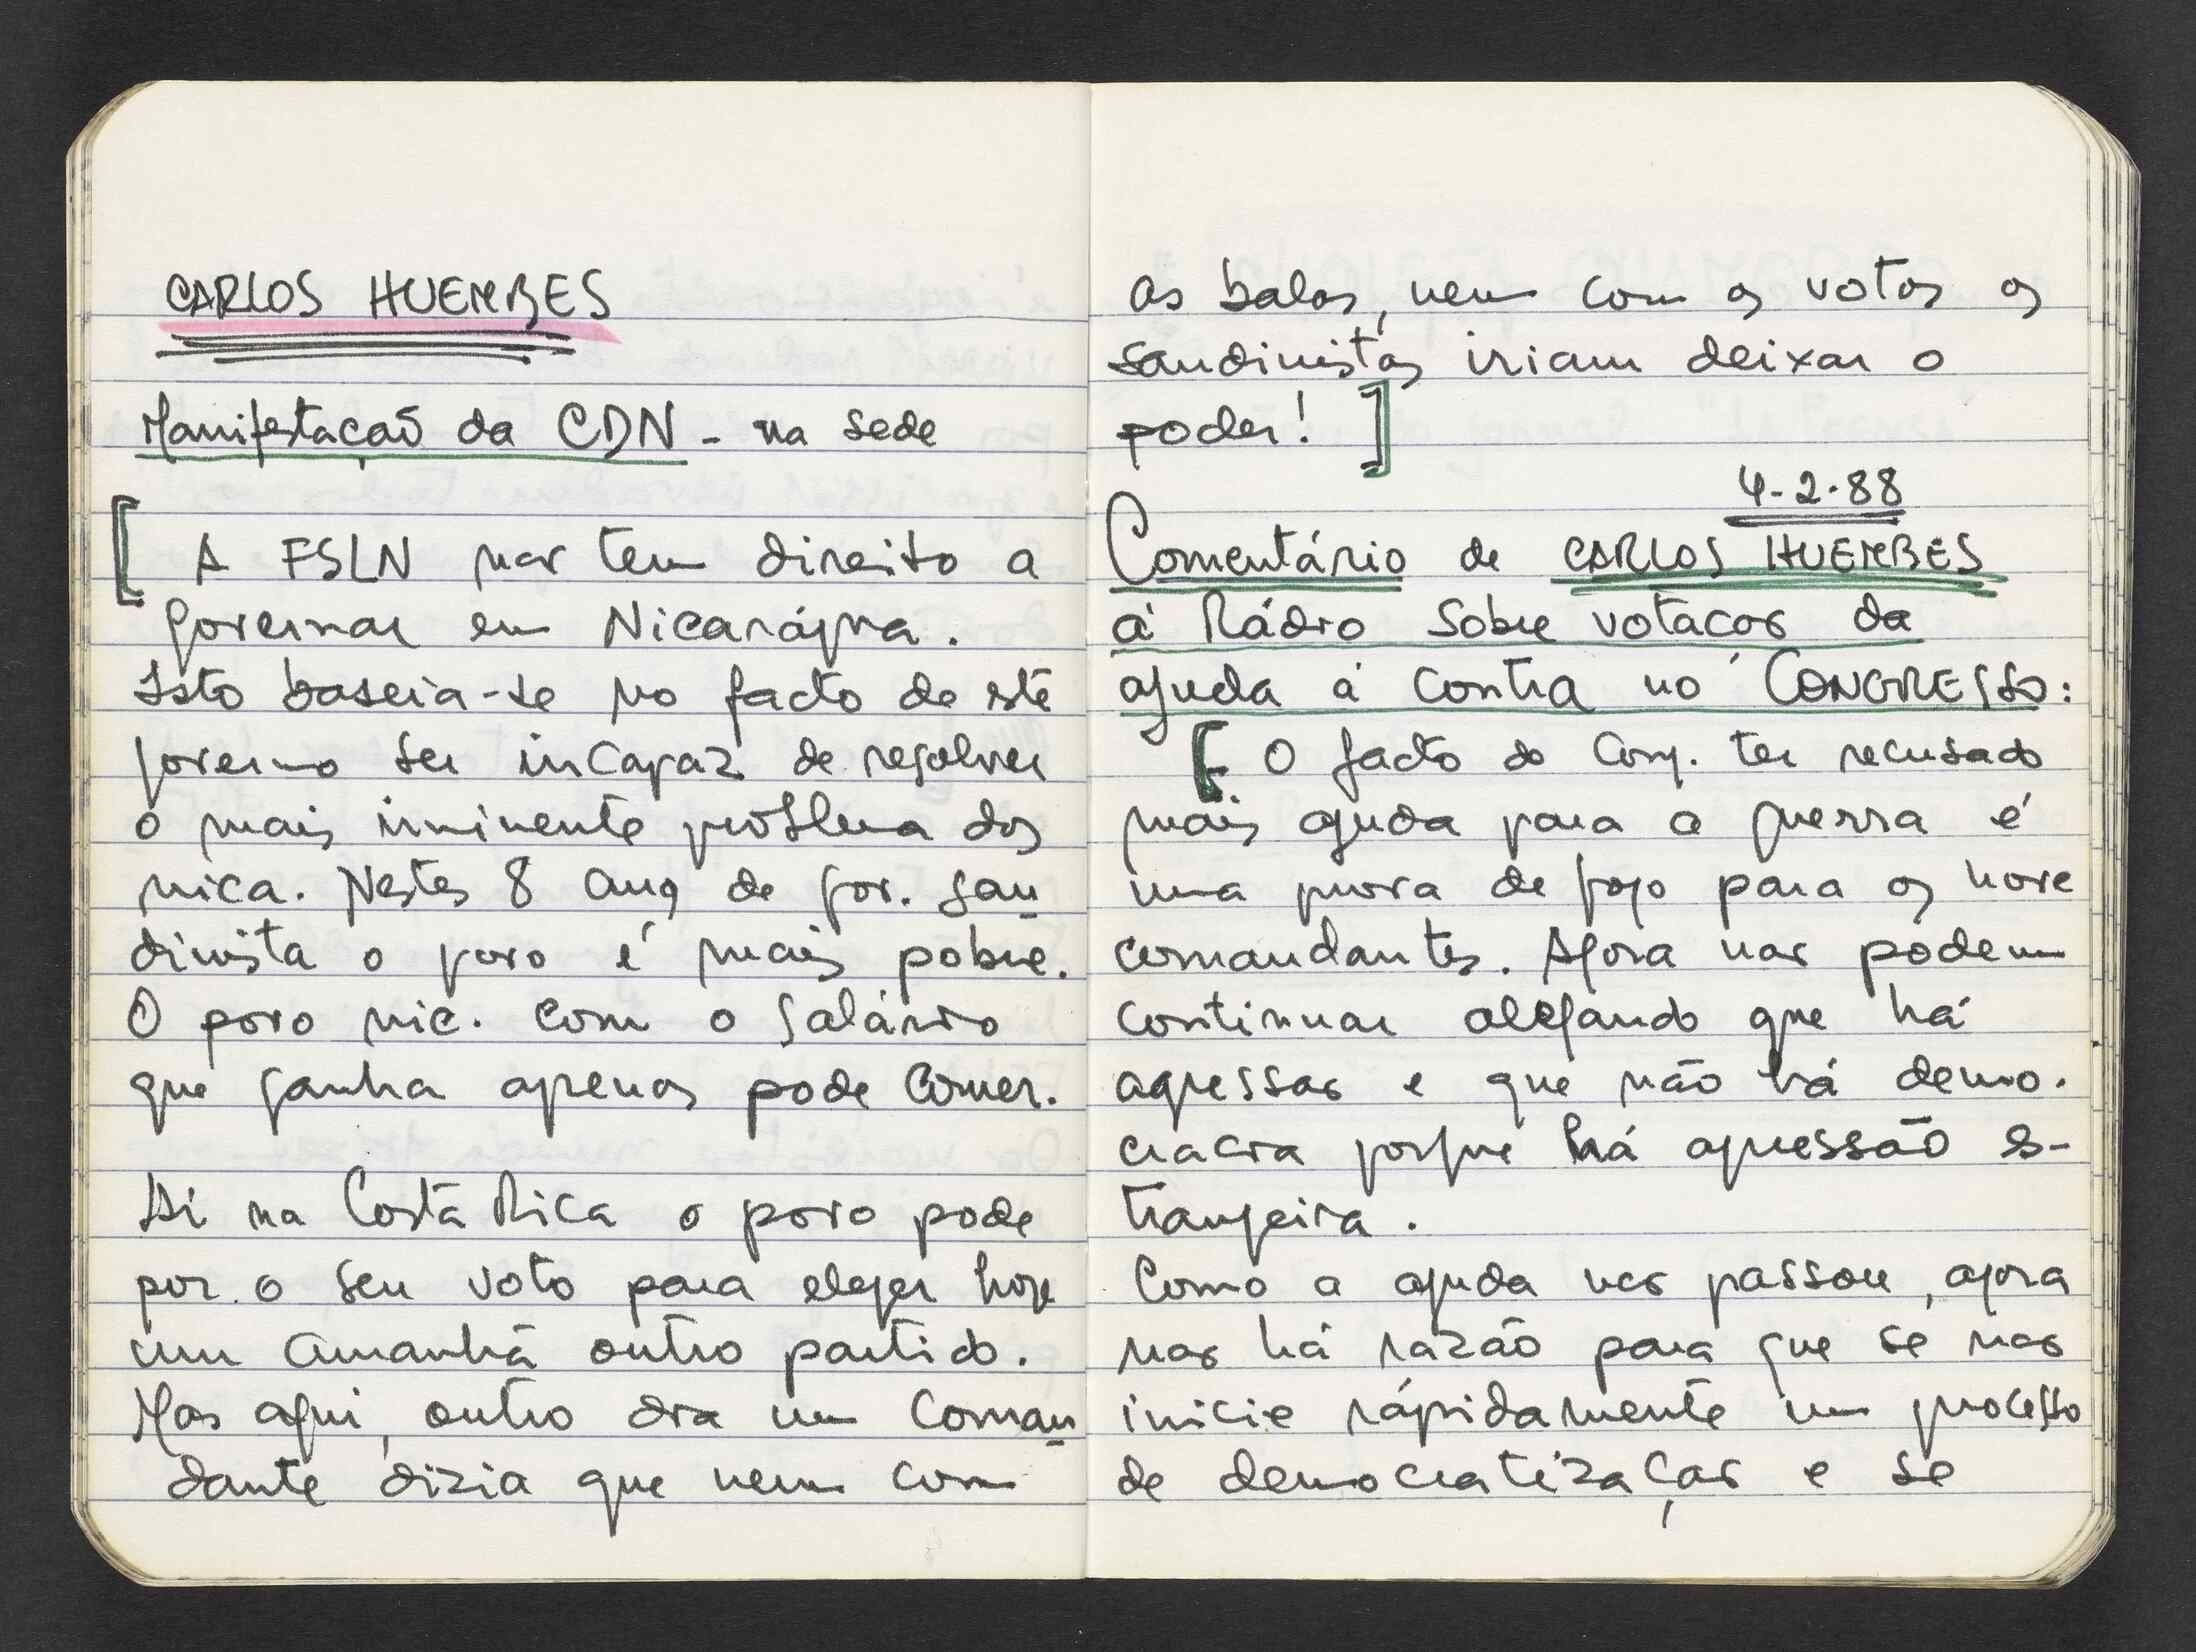 CARLOS HUEMBES
Manifestação da CDN - na sede
[ A FSLN não tem direito a
governar em Nicarágua.
Isto baseia-se no facto de este
governo ser incapaz de resolver
o mais iminente problema dos
nica. Nestes 8 anos de gov. san
dinista o povo é mais pobre.
O povo nic. com o salário
que ganha apenas pode comer.
Ai na Costa Rica o povo pode
por o seu voto para eleger hoje
um amanhã outro partido.
Mas aqui, outro dia um coman
dante dizia que nem com
as balas, nem com os votos os
sandinistas iriam deixar o
poder! ]
4-2-88
Comentário de CARLOS HUEMBES
á Rádio sobre votacão da
ajuda á contra no CONGRESSO:
[ O facto do Cong. ter recusado
mais ajuda para a guerra é
uma prova de fogo para os nove
comandantes. Agora não podem
continuar alegando que há
agressão e que não há demo-
cracia porque há agressão es-
trangeira.
Como a ajuda não passou, agora
não há razão para que se não
inicie rápidamente um processo
de democratização e se